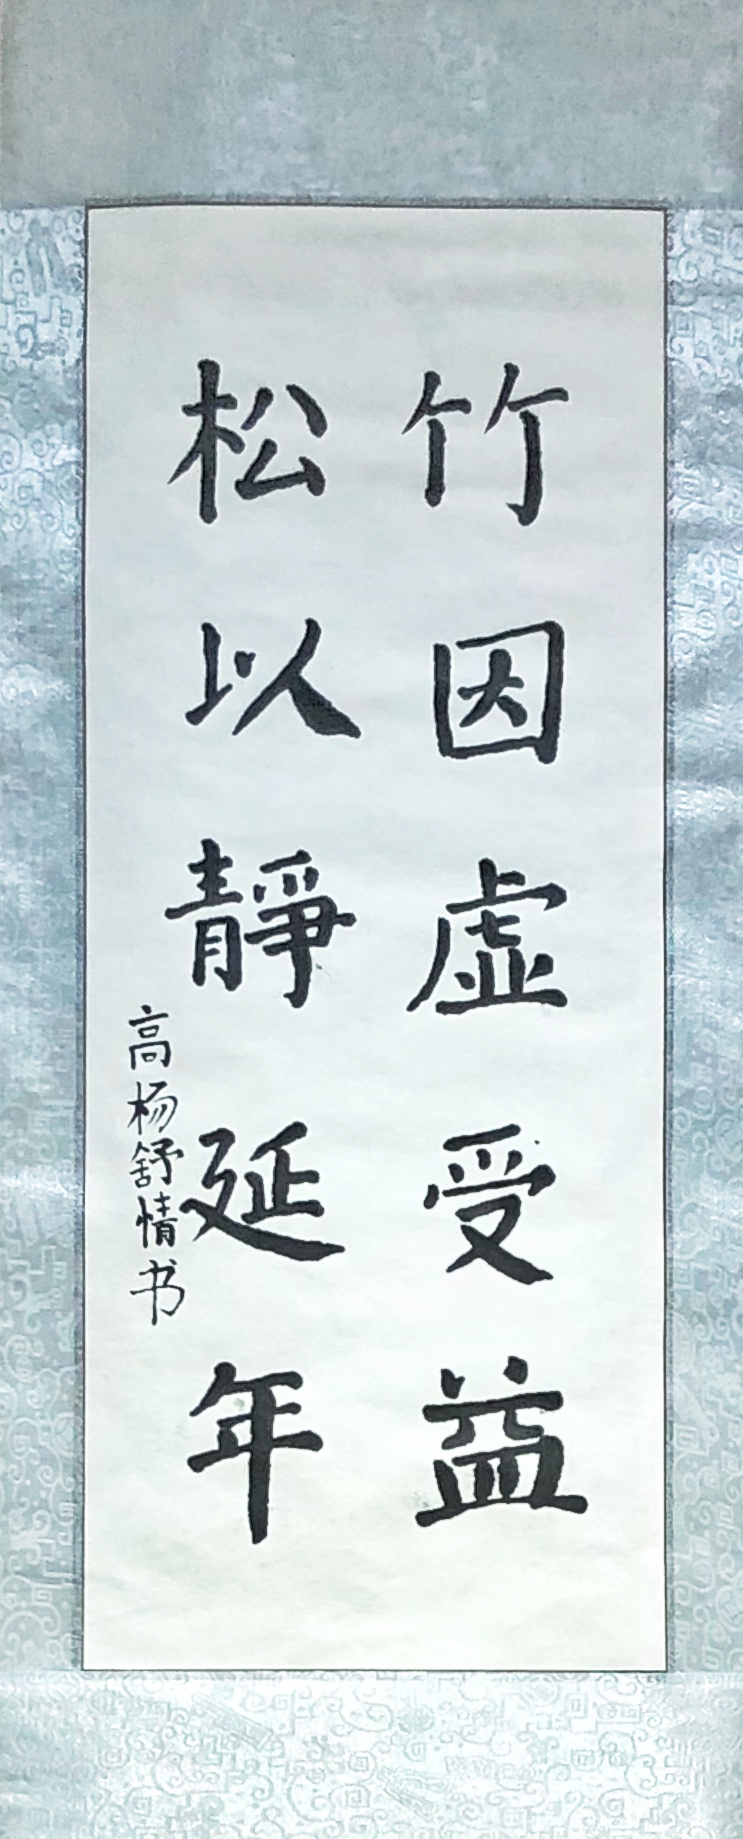 竹因虚受益
松以靜延年
高杨舒情书